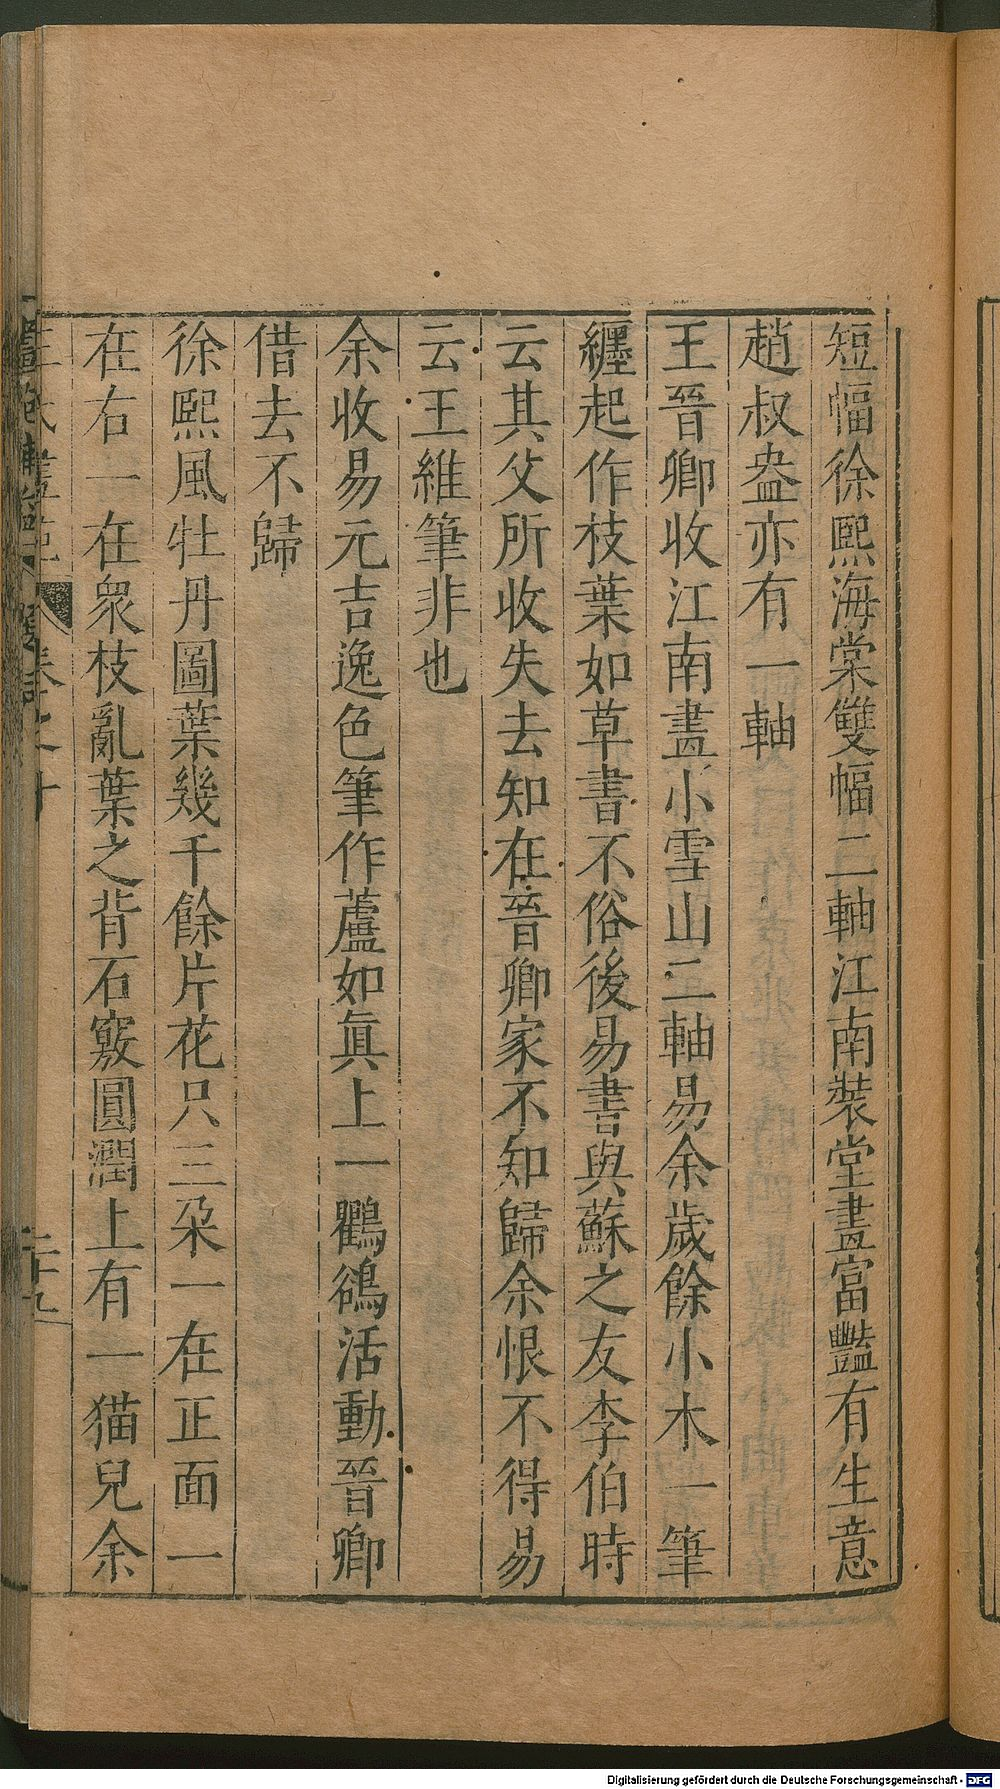 短幅徐熙海棠雙幅二軸江南裝堂畫富豔有生意
趙叔盎亦有一軸
王晉卿收江南畫小雪山二軸易余歲餘小木一筆
纏起作枝葉如草書不俗後易書與蘇之友李伯時
云其父所收失去知在晉卿家不知歸余恨不得易
云王維筆非也
余收易元吉逸色筆作蘆如眞上一鸜鵒活動晉卿
借去不歸
徐熙風牡丹圖葉幾千餘片花只三朶一在正面一
在右一在衆枝亂葉之背石竅圓潤上有一猫兒余
Digitalisierung gefördert durch die Deutsche Forschungsgemeinschaft - DFG